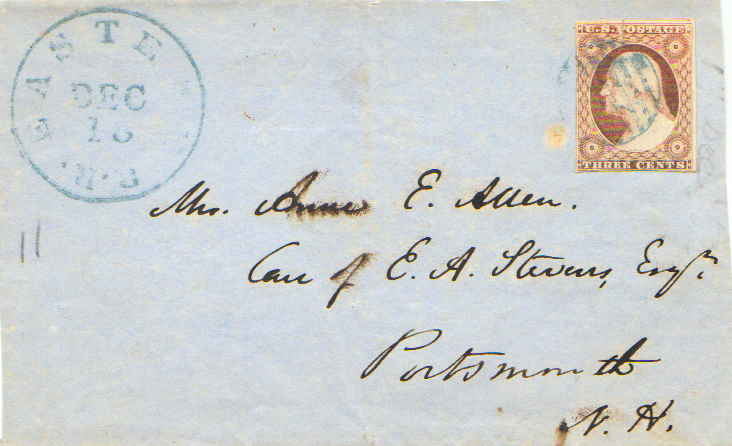 EASTE
R.R.
DEC
18
U.S. POSTAGE
THREE CENTS
Mrs. Anne E. Allen.
Care of E. A. Stevens, Esqr.
Portsmouth
N. H.
11